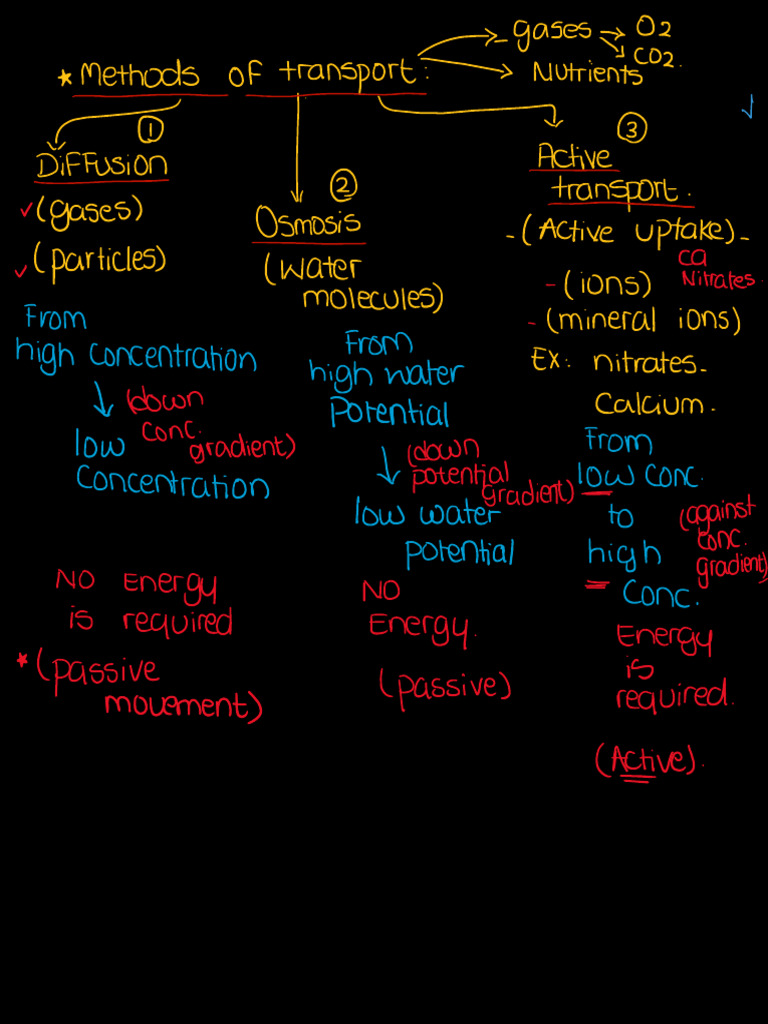 * Methods of transport:
- gases → O2
CO2.
Nutrients
①
Diffusion
✓ (gases)
✓ (particles)
From
high concentration
↓ (down
conc.
gradient)
low
Concentration
NO Energy
is required
* (passive
movement)
②
Osmosis
(water
molecules)
From
high water
Potential
↓ (down
potential
gradient)
low water
potential
NO
Energy.
(passive)
③
Active
transport.
- (Active uptake) -
ca
Nitrates.
- (ions)
- (mineral ions)
Ex: nitrates-
Calcium.
From
low conc.
to
high
conc.
(against
conc.
gradient)
Energy
is
required.
(Active).